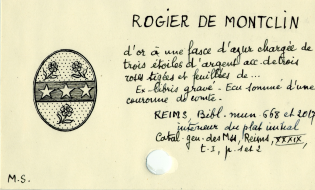 ROGIER DE MONTCLIN
d'or à une fasce d'azur chargée de
trois étoiles d'argent acc. de trois
roses tigées et feuillées de...
Ex-libris gravé - Ecu sommé d'une
couronne de comte.
REIMS, Bibl. mun 668 et 2017
intérieur du plat initial
Catal. gen. des Mss, Reims, XXXIX,
t-I, p.
M.S.